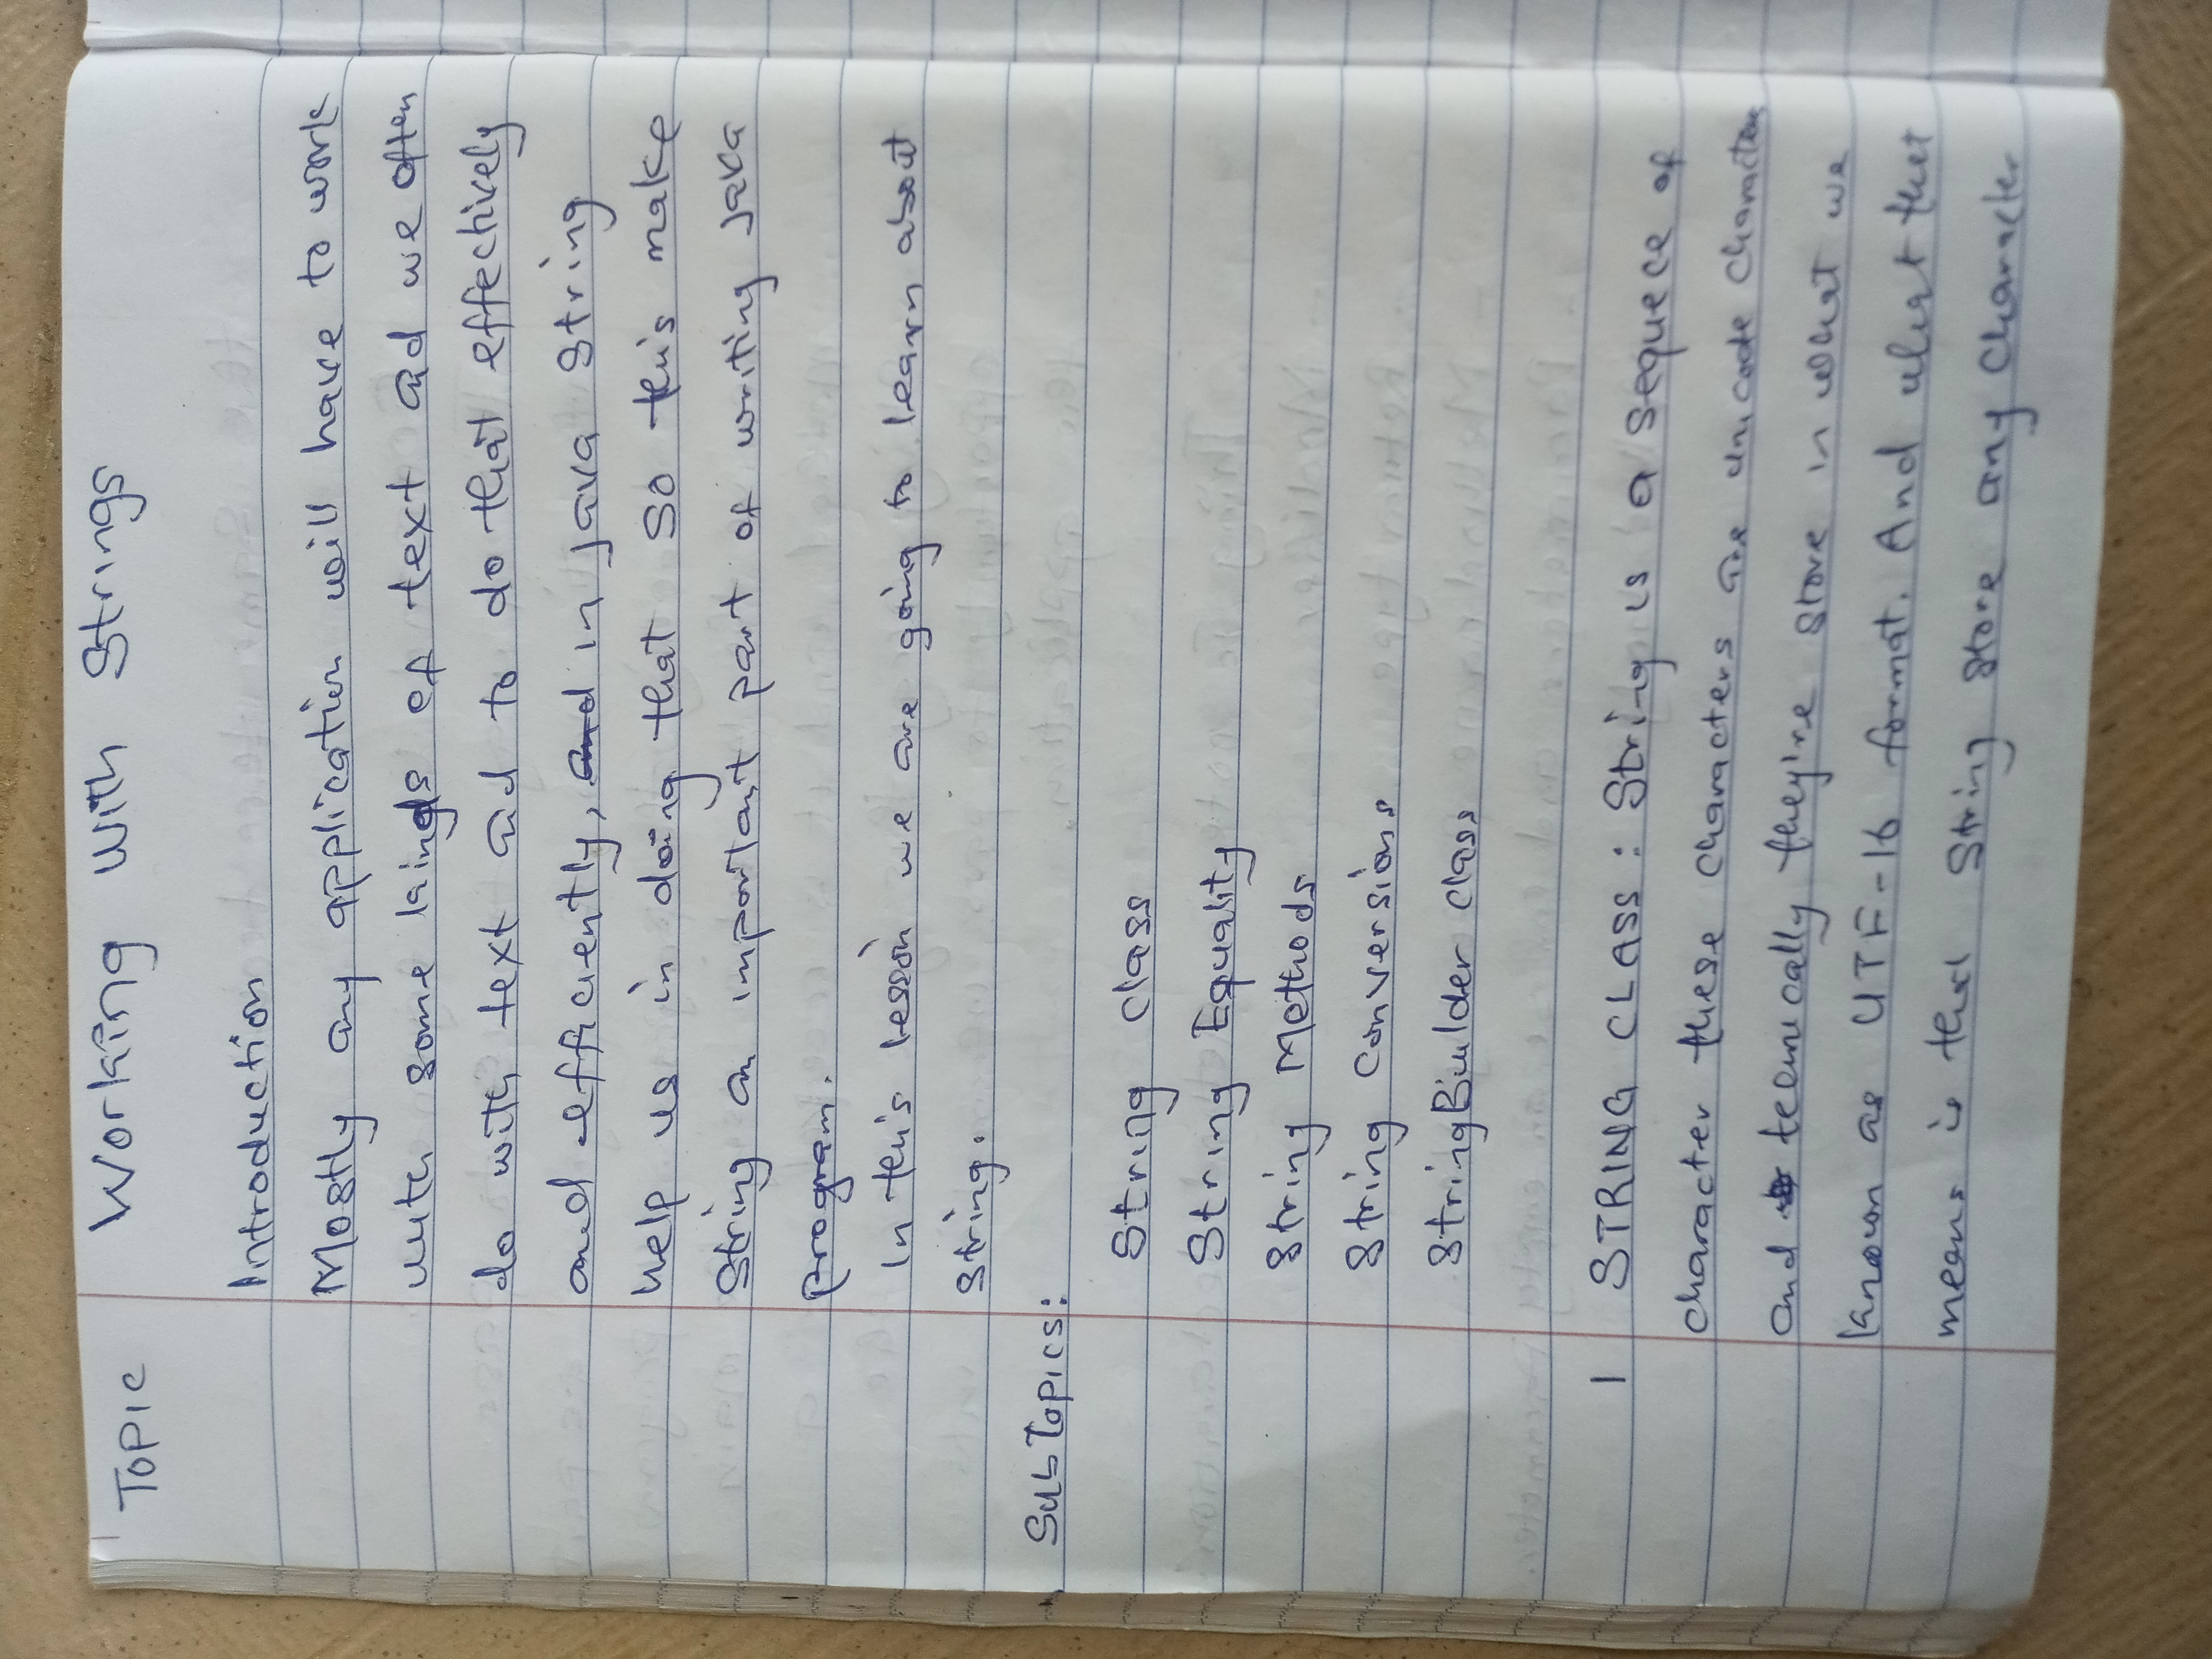 TOPIC Working with Strings
Introduction
Mostly any application will have to work
with some kinds of text and we often
do with text and to do that effectively
and efficiently, and in java string
help us in doing that so this make
string an important part of writing java
program.
In this lesson we are going to learn about
string.
SubTopics:
String class
String Equality
String Methods
String conversions
StringBuilder class
1 STRING CLASS: String is a sequece of
character these characters are unicode character
and tecnucally they're store in what we
known as UTF-16 format. And what that
means is that string store any character